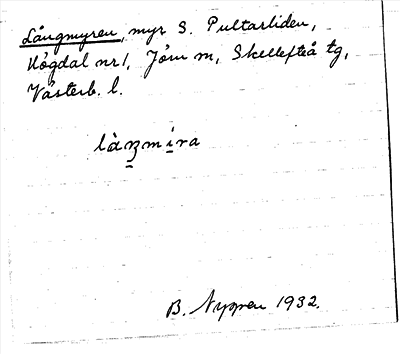 Långmyren, myr S. Pultarliden,
Högdal nr 1, Jörn m, Skellefteå tg,
Västerb. l.
làŋmira
B. Nygren 1932.